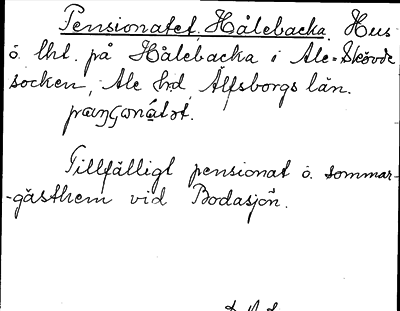 Pensionatet, Hålebacka. Hus
ö. lht. på Hålebacka i Ale-Skövde
socken, Ale hrd, Älfsborgs län.
Tillfälligt pensionat ö. sommar-
-gästhem vid Bodasjön.